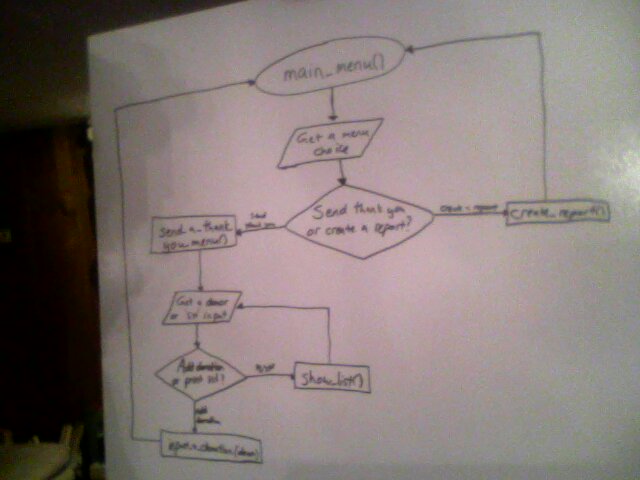 main_menu()
Get a menu
choice
Send thank you
or create a report?
create a report
create_report()
send
thank you
send_a_thank
you_menu()
Get a donor
or 'list' input
Add donation
or print list?
show_list()
add
donation